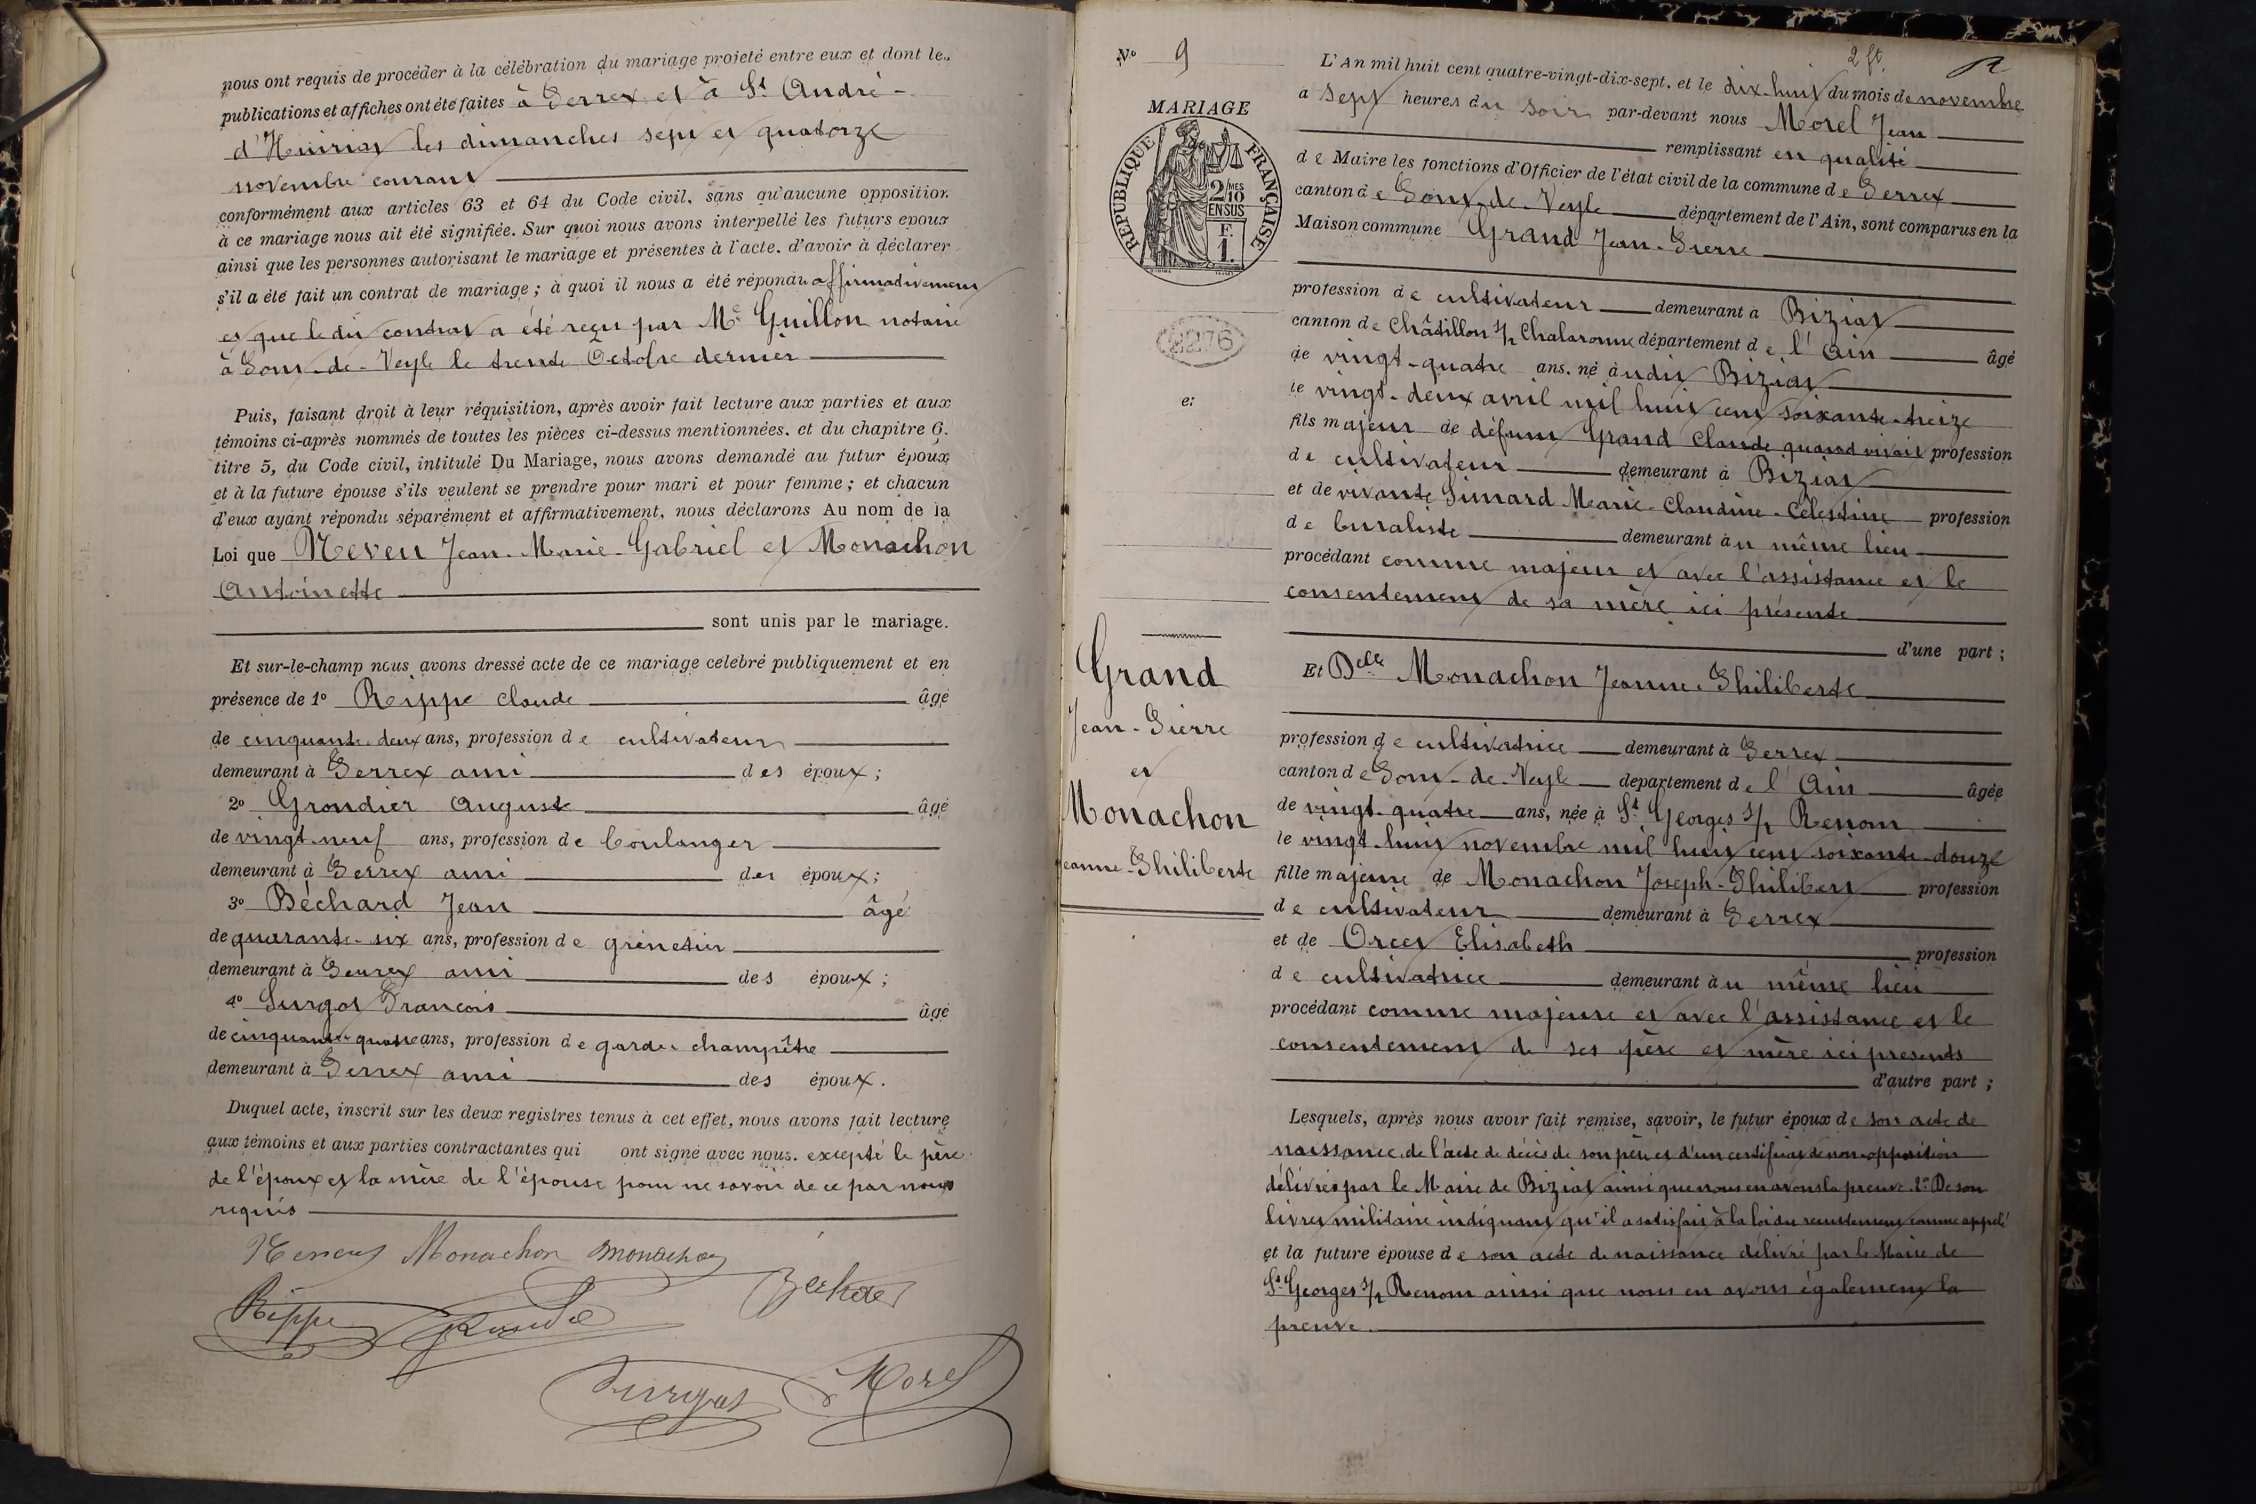 nous ont requis de procéder à la célébration du mariage projeté entre eux et dont les
publications et affiches ont été faites à Perrex et à St André-
d'Huiriat les dimanches sept et quatorze
novembre courant
conformément aux articles 63 et 64 du Code civil, sans qu'aucune opposition
à ce mariage nous ait été signifiée. Sur quoi nous avons interpellé les futurs époux
ainsi que les personnes autorisant le mariage et présentes à l'acte, d'avoir à déclarer
s'il a été fait un contrat de mariage ; à quoi il nous a été répondu affirmativement
et que le dit contrat a été reçu par Me Guillon notaire
à Pont-de-Veyle le trente Octobre dernier
Puis, faisant droit à leur réquisition, après avoir fait lecture aux parties et aux
témoins ci-après nommés de toutes les pièces ci-dessus mentionnées, et du chapitre 6,
titre 5, du Code civil, intitulé Du Mariage, nous avons demandé au futur époux
et à la future épouse s'ils veulent se prendre pour mari et pour femme ; et chacun
d'eux ayant répondu séparément et affirmativement, nous déclarons Au nom de la
Loi que Neveu Jean-Marie-Gabriel et Monachon
Antoinette
sont unis par le mariage.
Et sur-le-champ nous avons dressé acte de ce mariage célébré publiquement et en
présence de 1o Rippe Claude âgé
de cinquante-deux ans, profession de cultivateur
demeurant à Perrex ami des époux ;
2o Grondier Auguste âgé
de vingt-neuf ans, profession de boulanger
demeurant à Perrex ami des époux ;
3o Béchard Jean âgé
de quarante-six ans, profession de grènetier
demeurant à Perrex ami des époux ;
4o Surgot François âgé
de cinquante-quatre ans, profession de garde champêtre
demeurant à Perrex ami des époux.
Duquel acte, inscrit sur les deux registres tenus à cet effet, nous avons fait lecture
aux témoins et aux parties contractantes qui ont signé avec nous. excepté le père
de l'époux et la mère de l'épouse pour ne savoir de ce par nous
requis
Neveu Monachon monachon
Rippe
Surgot Morel
No 9
2 ft.
MARIAGE
RÉPUBLIQUE FRANÇAISE
2 MES 10
EN SUS
F.
1.
2276
e:
Grand
Jean-Pierre
et
Monachon
Jeanne-Philiberte
L'An mil huit cent quatre-vingt-dix-sept, et le dix-huit du mois de novembre
a sept heures du soir par-devant nous Morel Jean
remplissant en qualité
de Maire les fonctions d'Officier de l'état civil de la commune de Perrex
canton de Pont-de-Veyle département de l'Ain, sont comparus en la
Maison commune Grand Jean-Pierre
profession de cultivateur demeurant a Biziat
canton de Châtillon s/r Chalaronne département de l'Ain âgé
de vingt-quatre ans, né audit Biziat
le vingt-deux avril mil huit cent soixante-treize
fils majeur de défunt Grand Claude quand vivait profession
de cultivateur demeurant à Biziat
et de vivante Simard Marie-Claudine-Célestine profession
de buraliste demeurant au même lieu
procédant comme majeur et avec l'assistance et le
consentement de sa mère ici présente
d'une part ;
Et Delle Monachon Jeanne-Philiberte
profession de cultivatrice demeurant à Perrex
canton de Pont-de-Veyle département de l'Ain âgée
de vingt-quatre ans, née à St Georges s/r Renom
le vingt-huit novembre mil huit cent soixante-douze
fille majeure de Monachon Joseph-Philibert profession
de cultivateur demeurant à Perrex
et de Orcet Elisabeth profession
de cultivatrice demeurant au même lieu
procédant comme majeure et avec l'assistance et le
consentement de ses père et mère ici présents
d'autre part ;
Lesquels, après nous avoir fait remise, savoir, le futur époux de son acte de
naissance, de l'acte de décès de son père et d'un certificat de non-opposition
délivrés par le Maire de Biziat ainsi que nous en avons la preuve. 2o De son
livret militaire indiquant qu'il a satisfait à la loi du recrutement comme appelé
et la future épouse de son acte de naissance délivré par le Maire de
St Georges s/r Renom ainsi que nous en avons également la
preuve.